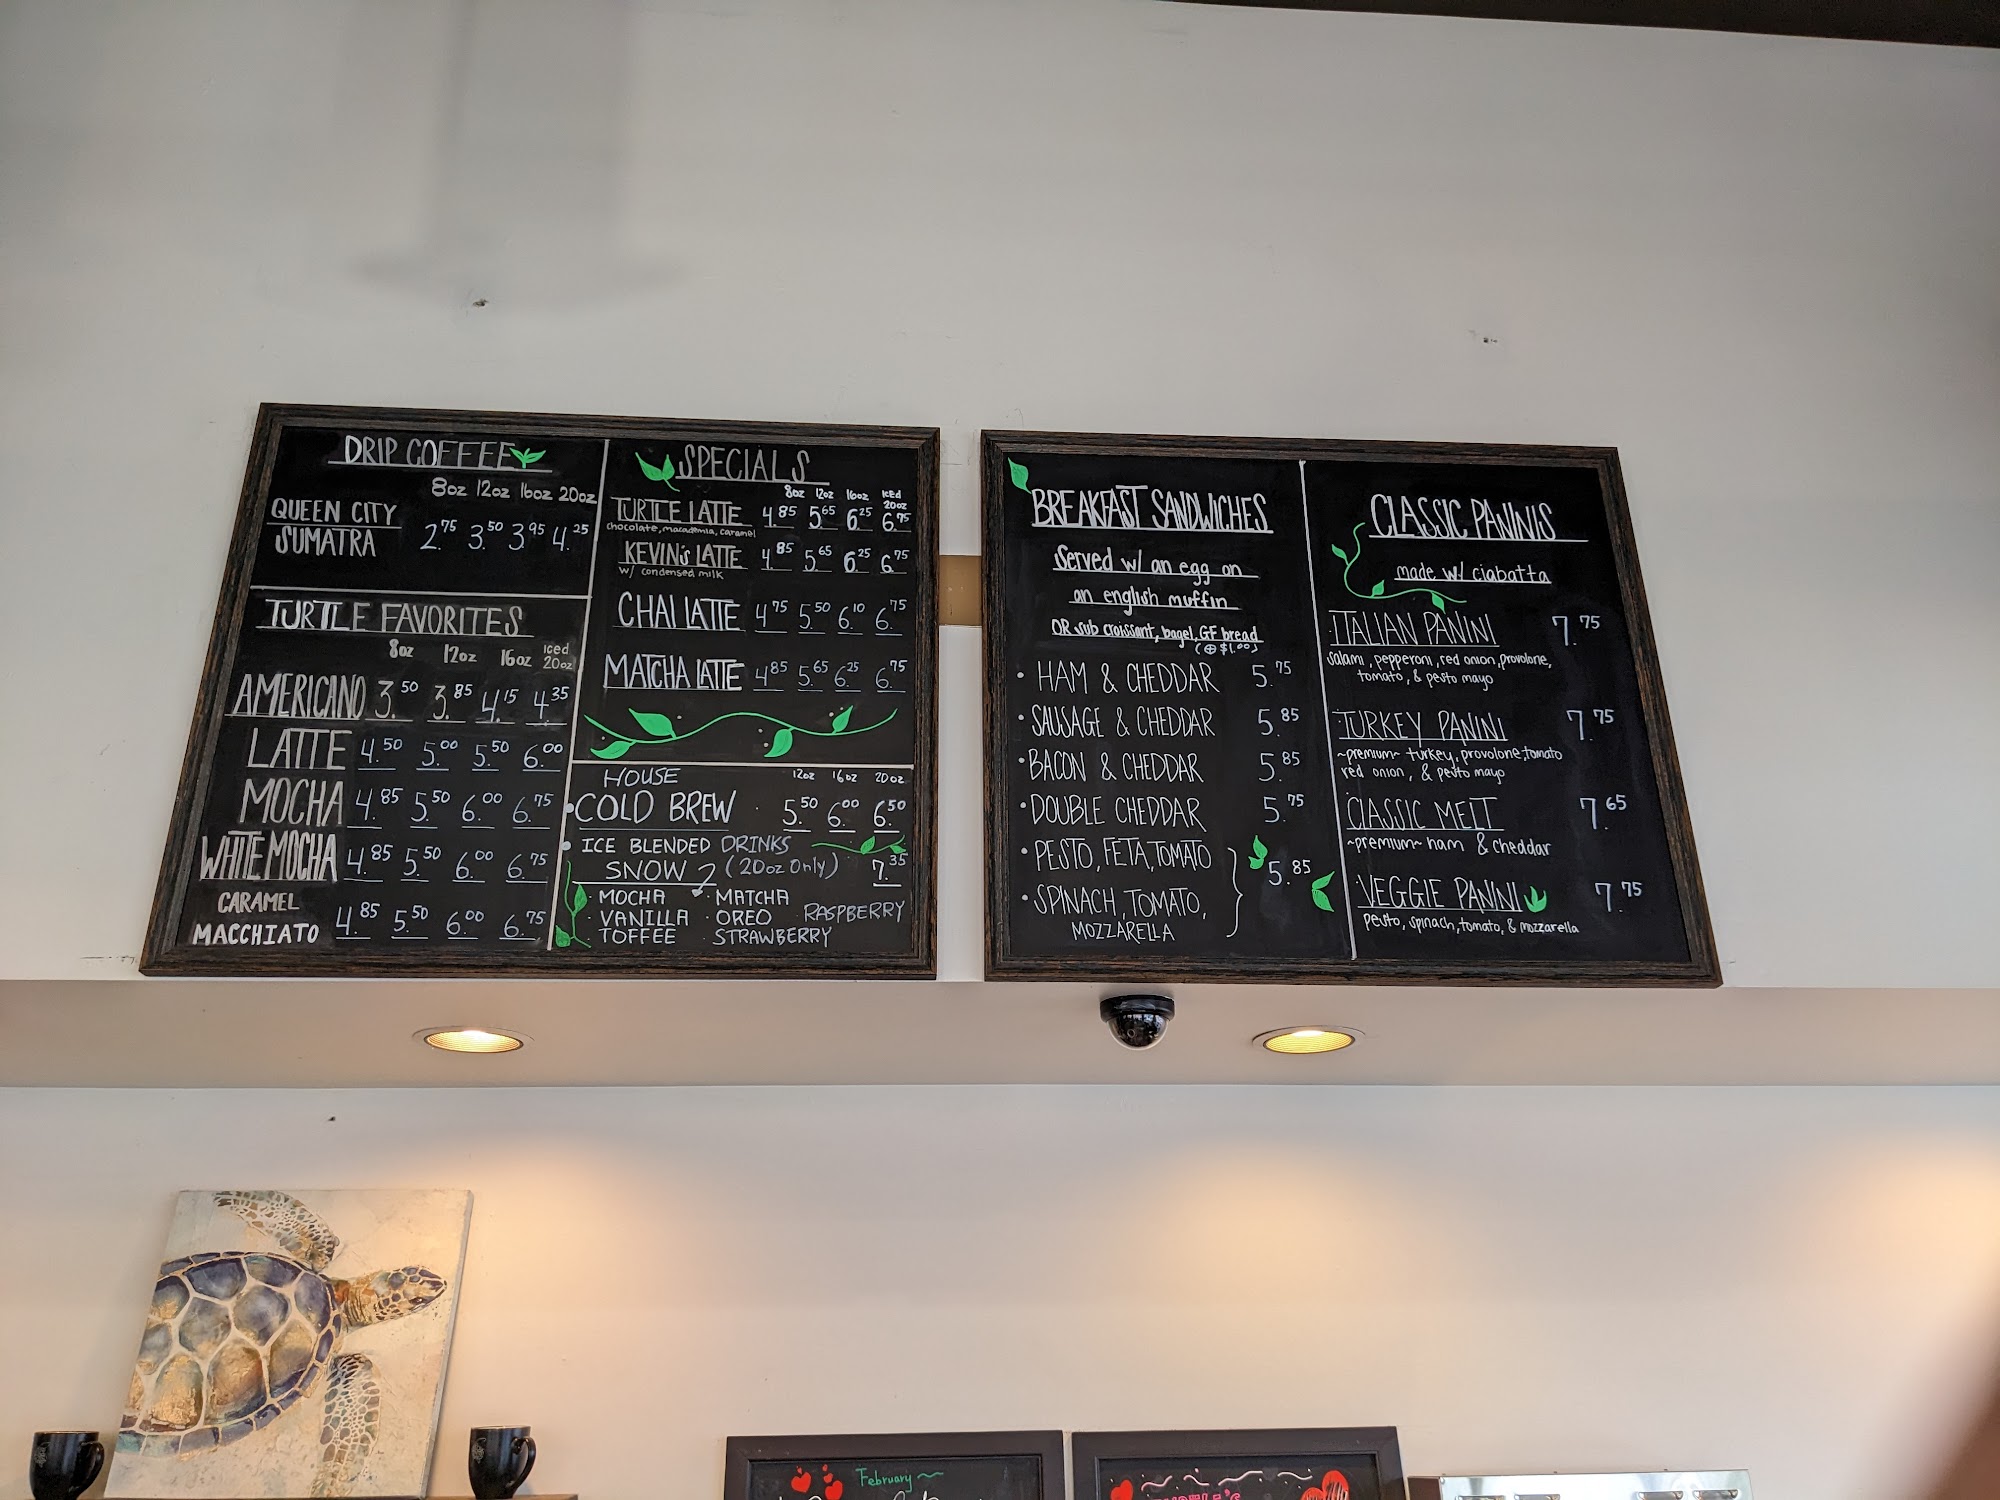 DRIP COFFEE
8oz 12oz 16oz 20oz
QUEEN CITY
SUMATRA 2.75 3.50 3.95 4.25
TURTLE FAVORITES
8oz 12oz 16oz iced 20oz
AMERICANO 3.50 3.85 4.15 4.35
LATTE 4.50 5.00 5.50 6.00
MOCHA 4.85 5.50 6.00 6.75
WHITE MOCHA 4.85 5.50 6.00 6.75
CARAMEL
MACCHIATO 4.85 5.50 6.00 6.75
SPECIALS
8oz 12oz 16oz iced 20oz
TURTLE LATTE 4.85 5.65 6.25 6.75
chocolate, macadamia, caramel
KEVIN's LATTE 4.85 5.65 6.25 6.75
w/ condensed milk
CHAI LATTE 4.75 5.50 6.10 6.75
MATCHA LATTE 4.85 5.65 6.25 6.75
HOUSE 12oz 16oz 20oz
COLD BREW 5.50 6.00 6.50
ICE BLENDED DRINKS
SNOW (20oz only) 7.35
· MOCHA · MATCHA
· VANILLA · OREO · RASPBERRY
· TOFFEE · STRAWBERRY
BREAKFAST SANDWICHES
Served w/ an egg on
an english muffin
OR sub croissant, bagel, GF bread
(+ $1.00)
• HAM & CHEDDAR 5.75
• SAUSAGE & CHEDDAR 5.85
• BACON & CHEDDAR 5.85
• DOUBLE CHEDDAR 5.75
• PESTO, FETA, TOMATO
• SPINACH, TOMATO, 5.85
MOZZARELLA
CLASSIC PANINIS
made w/ ciabatta
ITALIAN PANINI 7.75
salami, pepperoni, red onion, provolone,
tomato, & pesto mayo
TURKEY PANINI 7.75
~premium~ turkey, provolone, tomato
red onion, & pesto mayo
CLASSIC MELT 7.65
~premium~ ham & cheddar
VEGGIE PANINI 7.75
pesto, spinach, tomato, & mozzarella
February